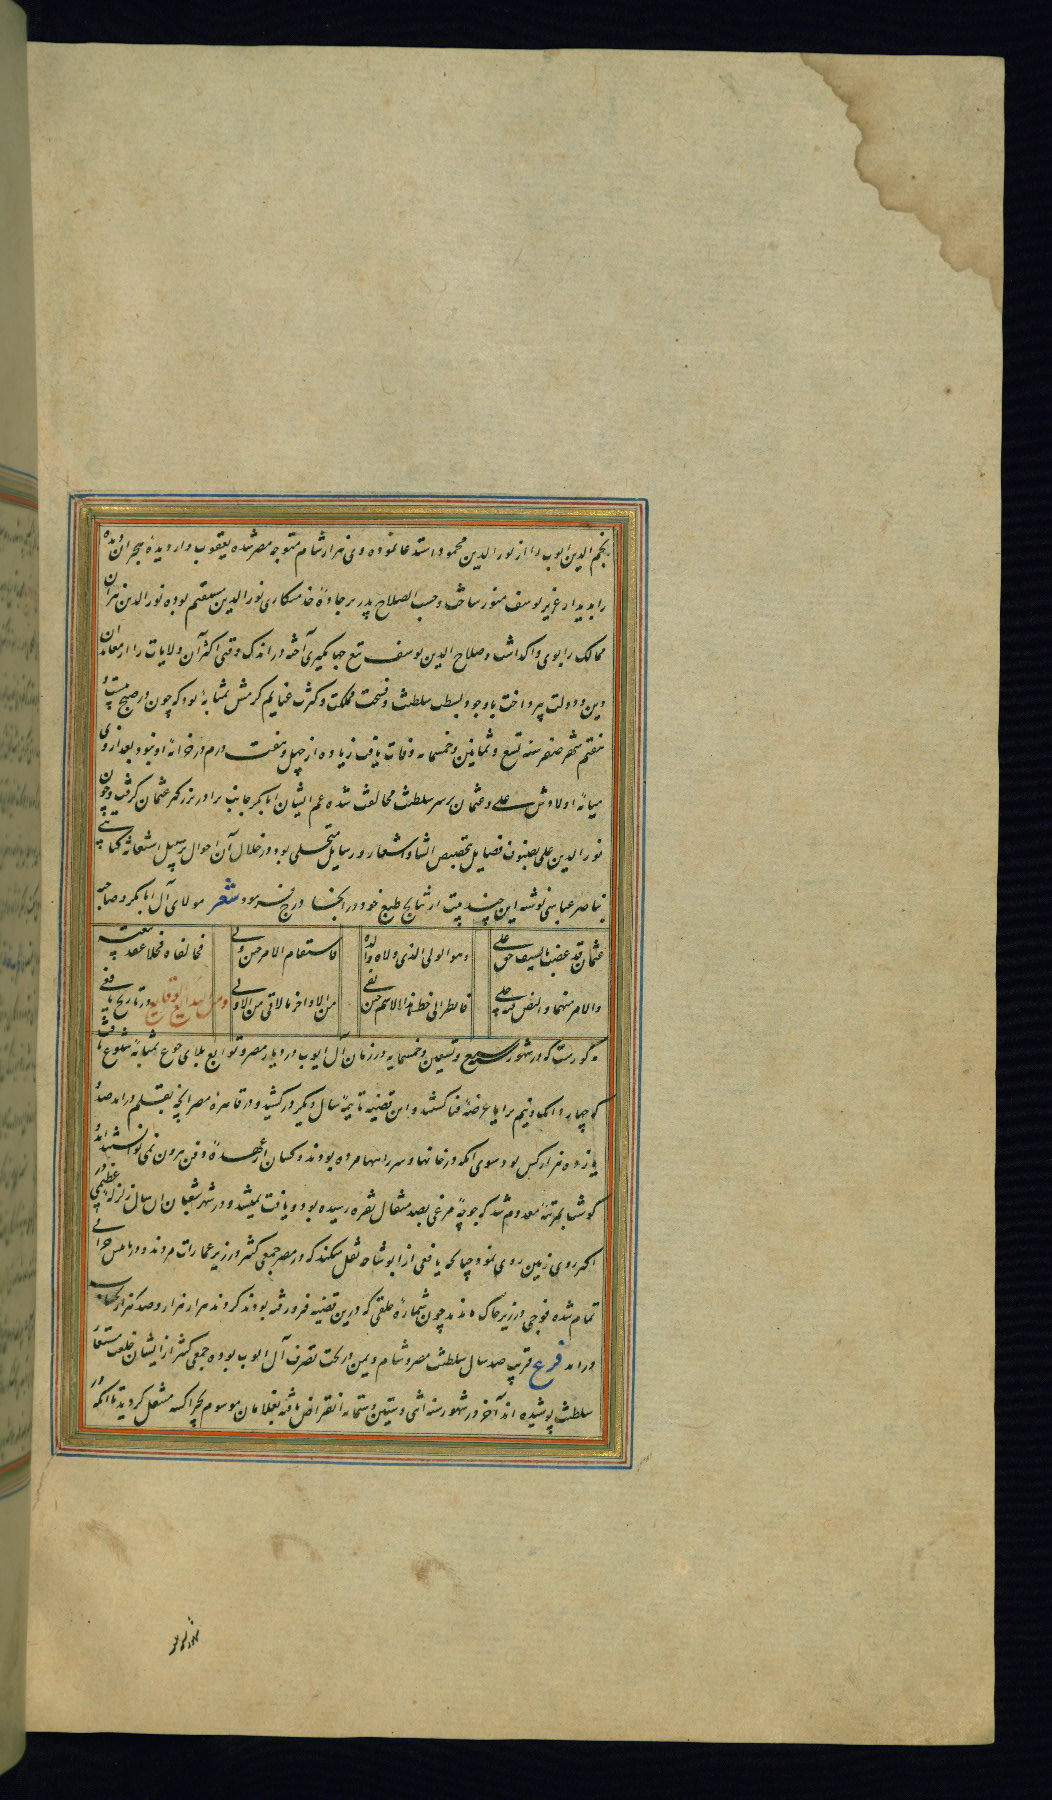 نجم الدین ایوب را از نور الدین محمود استدعا نموده وی نیز از شام متوجه مصر شده یعقوب وار دیده هجران دیده
را بدیدار عزیز یوسف منور ساخت و حسب الصلاح پدر بر جادهٔ خدمتکاری نور الدین مستقیم بوده نور الدین نیز آن
ممالک را بوی واگذاشت و صلاح الدین یوسف تیغ جهانگیری آخته در اندک وقتی اکثر آن ولایات را از معاندان
دین و دولت پرداخت با وجود بسطت سلطنت و فسحت مملکت و کثرت غنایم کرمش بمثابهٔ بود که چون در صبح بیست و
هفتم شهر صفر سنه تسع و ثمانین و خمسمایه وفات یافت زیاده از چهل و هفت درم در خزانهٔ او نبود بعد از وی
میانهٔ اولادش علی و عثمان بر سر سلطنت مخالفت شده عم ایشان ابابکر جانب برادر بزرگتر عثمان گرفت و چون
نور الدین علی بصنوف فضایل بتخصیص انشا و اشعار و رسایل متحلی بود در خلال آن احوال بر سبیل استغاثه کتابتی
بناصر عباسی نوشته این چند بیت از نتایج طبع خود در آنجا درج فرمود شعر مولای ان ابابکر و صاحبه
عثمان قد غضبا بالسیف حق علی وهو الولی الذی ولاه والده فاستقام الامر حین ولی فخالفاه فحلا عقد بیعته
والامر بینهما والنص فیه جلی فانظر الی خط هذا الاسم حین لقی من الاواخر ما لاقی من الاول ومن بدایع الوقایع در تاریخ یافعی
مذکورست که در شهور سبع و تسعین و خمسمایه در زمان آل ایوب در دیار مصر و توابع بلای جوع بمثابهٔ شیوع یافت
که چهار دانک و نیم برایا عرضهٔ فنا گشتند و این قضیه تا نیمهٔ سال دیگر در کشید و در قاهرهٔ مصر آنچه بقلم درآمد صد و
یازده هزار کس بود سوی آنکه در خانها و سر راهها مرده بودند و کسان از عهدهٔ دفن بیرون نمی توانستند آمد و
گوشت بمرتبهٔ معدوم شد که جوجهٔ مرغی بصد مثقال نقره رسیده بود و یافت نمیشد و در شهر شعبان آن سال زلزله عظیمی
روی زمین روی نمود چنانکه یافعی از ابو شامه نقل میکند که در مصر جمعی کثیر در زیر عمارات مردند و در نابلس خرابی
تمام شده فوجی در زیر خاک ماندند چون شمارهٔ خلقی که درین قضیه فرو رفته بودند کردند هزار هزار و صد هزار بحساب
درآمد فرع قریب صد سال سلطنت مصر و شام و یمن در تحت تصرف آل ایوب بوده جمعی کثیر از ایشان خلعت مستعار
سلطنت پوشیده اند آخر در شهور سنه اثنی و ستین و ستمایه انقراض یافته بغلامان موسوم بچراکسه منتقل گردید تا آنکه در